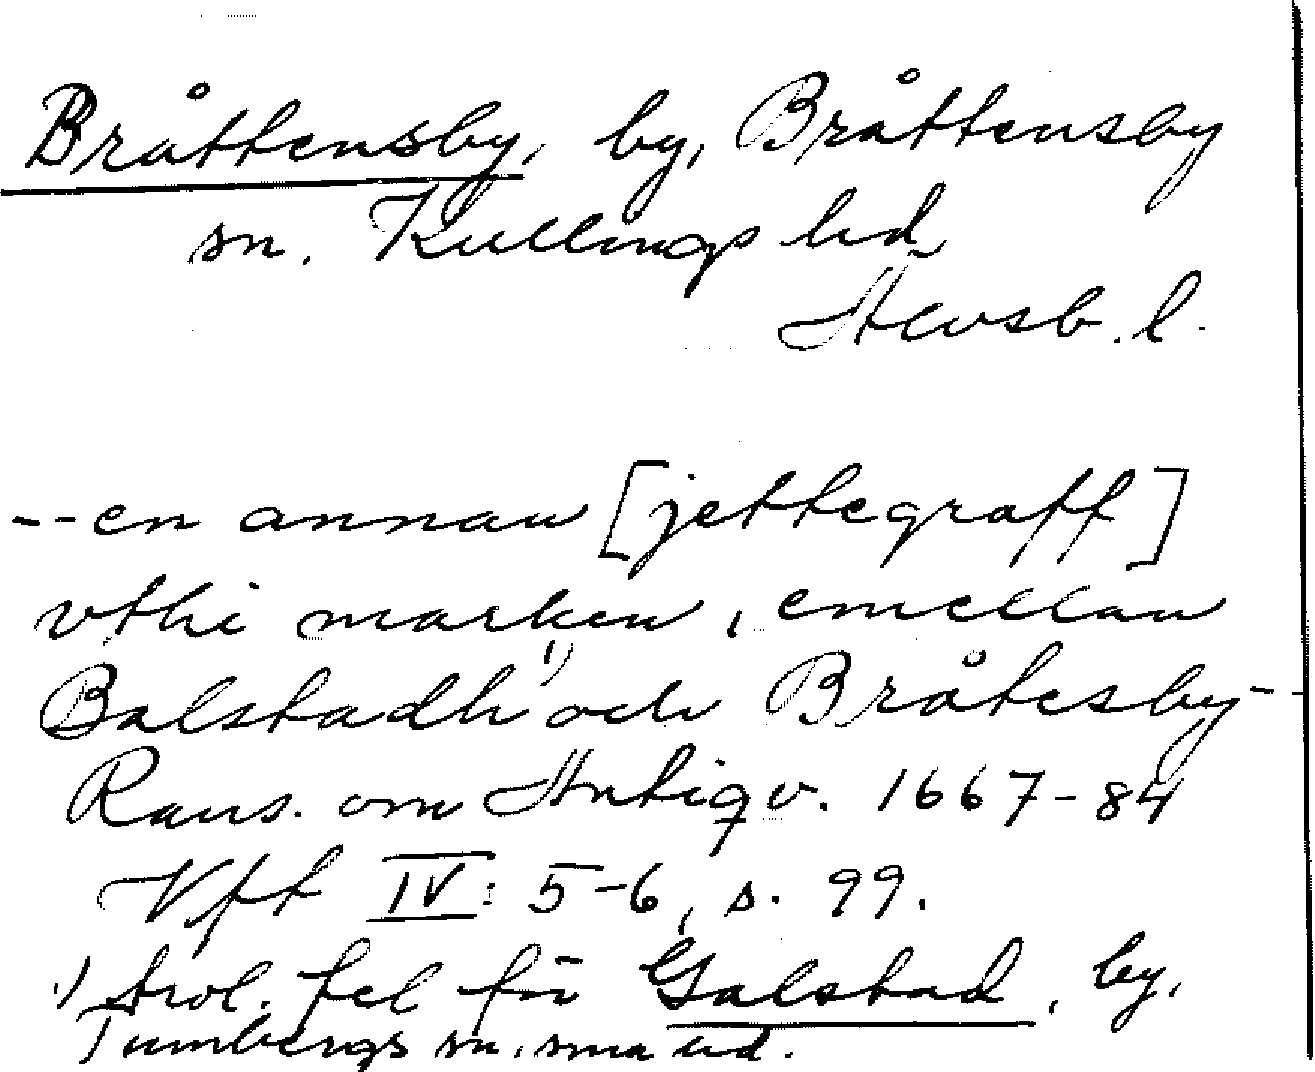 Bråttensby, by, Bråttensby
sn. Kullings hd,
Älvsb. l.
-- en annan [jettegraff]
vthi marken, emellan
Balstadh ¹⁾ och Bråtesby --
Rans. om Antiqv. 1667-84
Vft IV: 5-6, s. 99.
¹⁾ trol. fel för Galstad, by,
Tumbergs sn, sma hd.